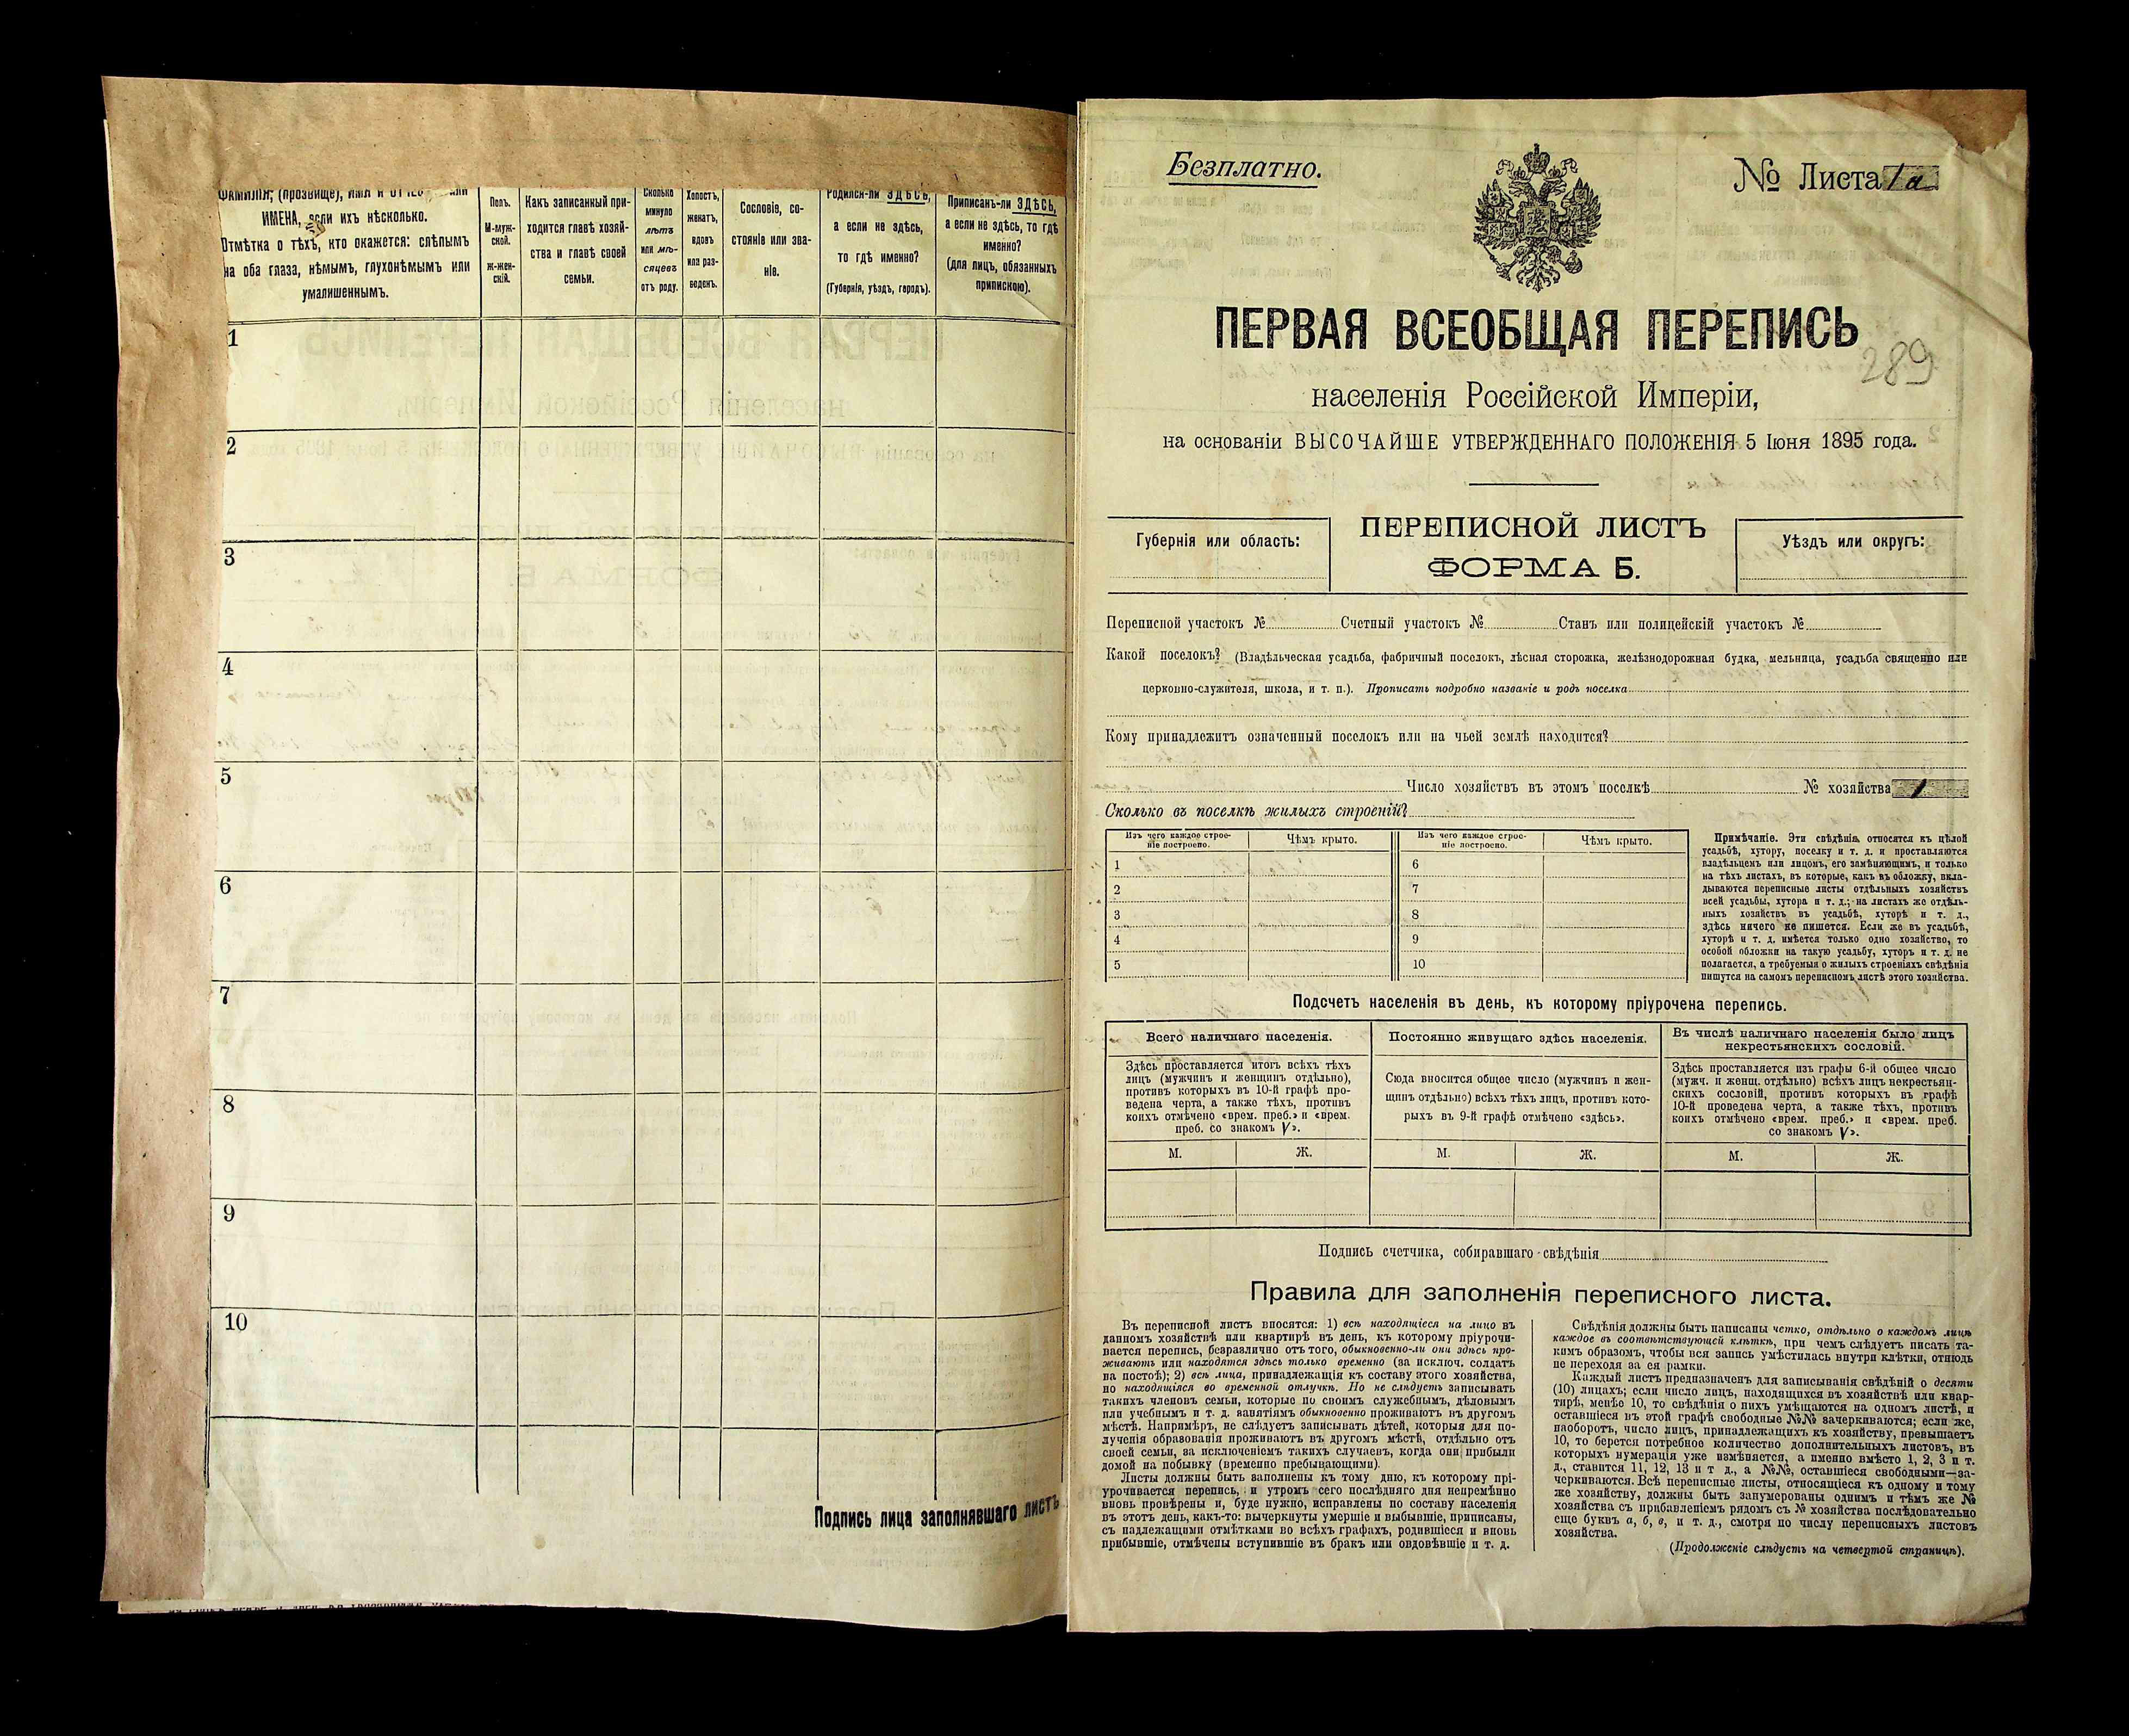 ФАМИЛІЯ, (прозвище), ИМЯ и ОТЧЕ или
ИМЕНА, если ихъ нѣсколько.
Отмѣтка о тѣхъ, кто окажется: слѣпымъ
на оба глаза, нѣмымъ, глухонѣмымъ или
умалишеннымъ.
Полъ.
М-муж-
ской.
ж-жен-
скій.
Какъ записанный при-
ходится главѣ хозяй-
ства и главѣ своей
семьи.
Сколько
минуло
лѣтъ
или мѣ-
сяцевъ
отъ роду.
Холостъ,
женатъ,
вдовъ
или раз-
веденъ.
Сословіе, со-
стояніе или зва-
ніе.
Родился-ли ЗДѢСЬ,
а если не здѣсь,
то гдѣ именно?
(Губернія, уѣздъ, городъ).
Приписанъ-ли ЗДѢСЬ,
а если не здѣсь, то гдѣ
именно?
(для лицъ, обязанныхъ
припискою).
1
2
3
4
5
6
7
8
9
10
Подпись лица заполнявшаго листъ
Безплатно.
№ Листа 1а
ПЕРВАЯ ВСЕОБЩАЯ ПЕРЕПИСЬ
289
населенія Россійской Имперіи,
на основаніи ВЫСОЧАЙШЕ УТВЕРЖДЕННАГО ПОЛОЖЕНІЯ 5 Іюня 1895 года.
Губернія или область:
ПЕРЕПИСНОЙ ЛИСТЪ
ФОРМА Б.
Уѣздъ или округъ:
Переписной участокъ № Счетный участокъ № Станъ или полицейскій участокъ №
Какой поселокъ? (Владѣльческая усадьба, фабричный поселокъ, лѣсная сторожка, желѣзнодорожная будка, мельница, усадьба священно или
церковно-служителя, школа, и т. п.). Прописать подробно названіе и родъ поселка
Кому принадлежитъ означенный поселокъ или на чьей землѣ находится?
Число хозяйствъ въ этомъ поселкѣ № хозяйства 1
Сколько въ поселкѣ жилыхъ строеній?
Изъ чего каждое строе-
ніе построено.
Чѣмъ крыто.
Изъ чего каждое строе-
ніе построено.
Чѣмъ крыто.
1
2
3
4
5
6
7
8
9
10
Примѣчаніе. Эти свѣдѣнія относятся къ цѣлой
усадьбѣ, хутору, поселку и т. д. и проставляются
владѣльцемъ или лицомъ, его замѣняющимъ, и только
на тѣхъ листахъ, въ которые, какъ въ обложку, вкла-
дываются переписные листы отдѣльныхъ хозяйствъ
всей усадьбы, хутора и т. д.; на листахъ же отдѣль-
ныхъ хозяйствъ въ усадьбѣ, хуторѣ и т. д.,
здѣсь ничего не пишется. Если же въ усадьбѣ,
хуторѣ и т. д. имѣется только одно хозяйство, то
особой обложки на такую усадьбу, хуторъ и т. д. не
полагается, а требуемыя о жилыхъ строеніяхъ свѣдѣнія
пишутся на самомъ переписномъ листѣ этого хозяйства.
Подсчетъ населенія въ день, къ которому пріурочена перепись.
Всего наличнаго населенія.
Здѣсь проставляется итогъ всѣхъ тѣхъ
лицъ (мужчинъ и женщинъ отдѣльно),
противъ которыхъ въ 10-й графѣ про-
ведена черта, а также тѣхъ, противъ
коихъ отмѣчено «врем. преб.» и «врем.
преб. со знакомъ V».
Постоянно живущаго здѣсь населенія.
Сюда вносится общее число (мужчинъ и жен-
щинъ отдѣльно) всѣхъ тѣхъ лицъ, противъ кото-
рыхъ въ 9-й графѣ отмѣчено «здѣсь».
Въ числѣ наличнаго населенія было лицъ
некрестьянскихъ сословій.
Здѣсь проставляется изъ графы 6-й общее число
(мужч. и женщ. отдѣльно) всѣхъ лицъ некрестьян-
скихъ сословій, противъ которыхъ въ графѣ
10-й проведена черта, а также тѣхъ, противъ
коихъ отмѣчено «врем. преб.» и «врем. преб.
со знакомъ V».
М. Ж. М. Ж. М. Ж.
Подпись счетчика, собиравшаго свѣдѣнія
Правила для заполненія переписного листа.
Въ переписной листъ вносятся: 1) всѣ находящіеся на лицо въ
данномъ хозяйствѣ или квартирѣ въ день, къ которому пріурочи-
вается перепись, безразлично отъ того, обыкновенно-ли они здѣсь про-
живаютъ или находятся здѣсь только временно (за исключ. солдатъ
на постоѣ); 2) всѣ лица, принадлежащія къ составу этого хозяйства,
но находящіяся во временной отлучкѣ. Но не слѣдуетъ записывать
такихъ членовъ семьи, которые по своимъ служебнымъ, дѣловымъ
или учебнымъ и т. д. занятіямъ обыкновенно проживаютъ въ другомъ
мѣстѣ. Напримѣръ, не слѣдуетъ записывать дѣтей, которыя для по-
лученія образованія проживаютъ въ другомъ мѣстѣ, отдѣльно отъ
своей семьи, за исключеніемъ такихъ случаевъ, когда они прибыли
домой на побывку (временно пребывающими).
Листы должны быть заполнены къ тому дню, къ которому прі-
урочивается перепись, и утромъ сего послѣдняго дня непремѣнно
вновь провѣрены и, буде нужно, исправлены по составу населенія
въ этотъ день, какъ-то: вычеркнуты умершіе и выбывшіе, приписаны,
съ надлежащими отмѣтками во всѣхъ графахъ, родившіеся и вновь
прибывшіе, отмѣчены вступившіе въ бракъ или овдовѣвшіе и т. д.
Свѣдѣнія должны быть написаны четко, отдѣльно о каждомъ лицѣ
каждое въ соотвѣтствующей клѣткѣ, при чемъ слѣдуетъ писать та-
кимъ образомъ, чтобы вся запись умѣстилась внутри клѣтки, отнюдь
не переходя за ея рамки.
Каждый листъ предназначенъ для записыванія свѣдѣній о десяти
(10) лицахъ; если число лицъ, находящихся въ хозяйствѣ или квар-
тирѣ, менѣе 10, то свѣдѣнія о нихъ умѣщаются на одномъ листѣ, и
оставшіеся въ этой графѣ свободные №№ зачеркиваются; если же,
наоборотъ, число лицъ, принадлежащихъ къ хозяйству, превышаетъ
10, то берется потребное количество дополнительныхъ листовъ, въ
которыхъ нумерація уже измѣняется, а именно вмѣсто 1, 2, 3 и т.
д., ставится 11, 12, 13 и т д., а №№, оставшіеся свободными—за-
черкиваются. Всѣ переписные листы, относящіеся къ одному и тому
же хозяйству, должны быть занумерованы однимъ и тѣмъ же №
хозяйства съ прибавленіемъ рядомъ съ № хозяйства послѣдовательно
еще буквъ а, б, в, и т. д., смотря по числу переписныхъ листовъ
хозяйства.
(Продолженіе слѣдуетъ на четвертой страницѣ).